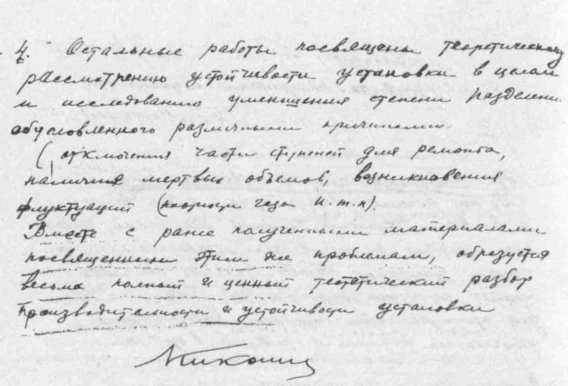 4. Остальные работы посвящены теоретическому
рассмотрению устойчивости установки в целом
и исследованию уменьшения степени разделени
обусловленного различными причинами.
(отключения части ступеней для ремонта,
наличия мертвых объемов, возникновения
флуктуаций (подачи газа и.т.п).
Вместе с ранее полученными материалами
посвященными этим же проблемам, образуется
весьма полный и ценный теоретический разбор
производительности и устойчивости установки